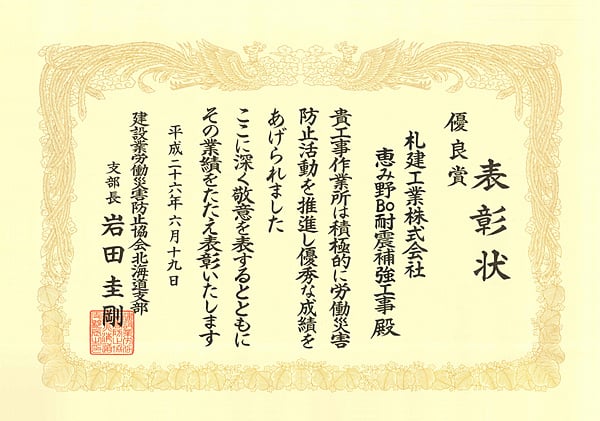 表彰状
優良賞
札建工業株式会社
恵み野Bo耐震補強工事 殿
貴工事作業所は積極的に労働災害
防止活動を推進し優秀な成績を
あげられました
ここに深く敬意を表するとともに
その業績をたたえ表彰いたします
平成二十六年六月十九日
建設業労働災害防止協会北海道支部
支部長 岩田圭剛